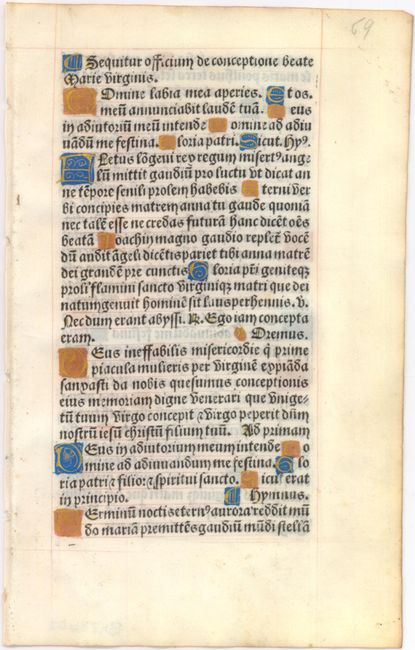 69
Sequitur officium de conceptione beate
Marie virginis.
Omine labia mea aperies. Et os.
meū annunciabit laudē tuā. eus
in adiutoriū meū intende omine ad adiu
uādū me festina. loria patri. Sicut. Hyꝰ.
Fletus lōgeui rey regum misertꝰ ange
lū mittit gaudiū pro luctu vt dicat an
ne tēpore senili prolem habebis terni ver
bi concipies matrem anna tu gaude quoniā
nec talē esse ne credas futurā hanc dicēt oēs
beatā Joachin magno gaudio replet̄ vocē
dū audit āgeli dicētis pariet tibi anna matrē
dei grandē pre cunctis loria pr̄i geniteqꝫ
proli flamini sancto virginiqꝫ matri que dei
natum genuit hominē sit laus perhennis. v.
Nec dum erant abyssi. R. Ego iam concepta
eram. Oremus.
Eus ineffabilis misericordie q̄ prime
piacula mulieris per virginē expiāda
sanxasti da nobis quesumus conceptionis
eius memoriam digne venerari que vnige-
tū tuum virgo concepit ⁊ virgo peperit dn̄m
nostrū iesū christū filium tuū. Ad primam
Deus in adiutorium meum intende o
mine ad adiuuandum me festina. Glo
ria patri ⁊ filio: ⁊ spiritui sancto. icut erat
in principio. Hymnus.
Erminū noctis eternꝰ aurora reddit mū
do mariā premittēs gaudiū mūdi stellā